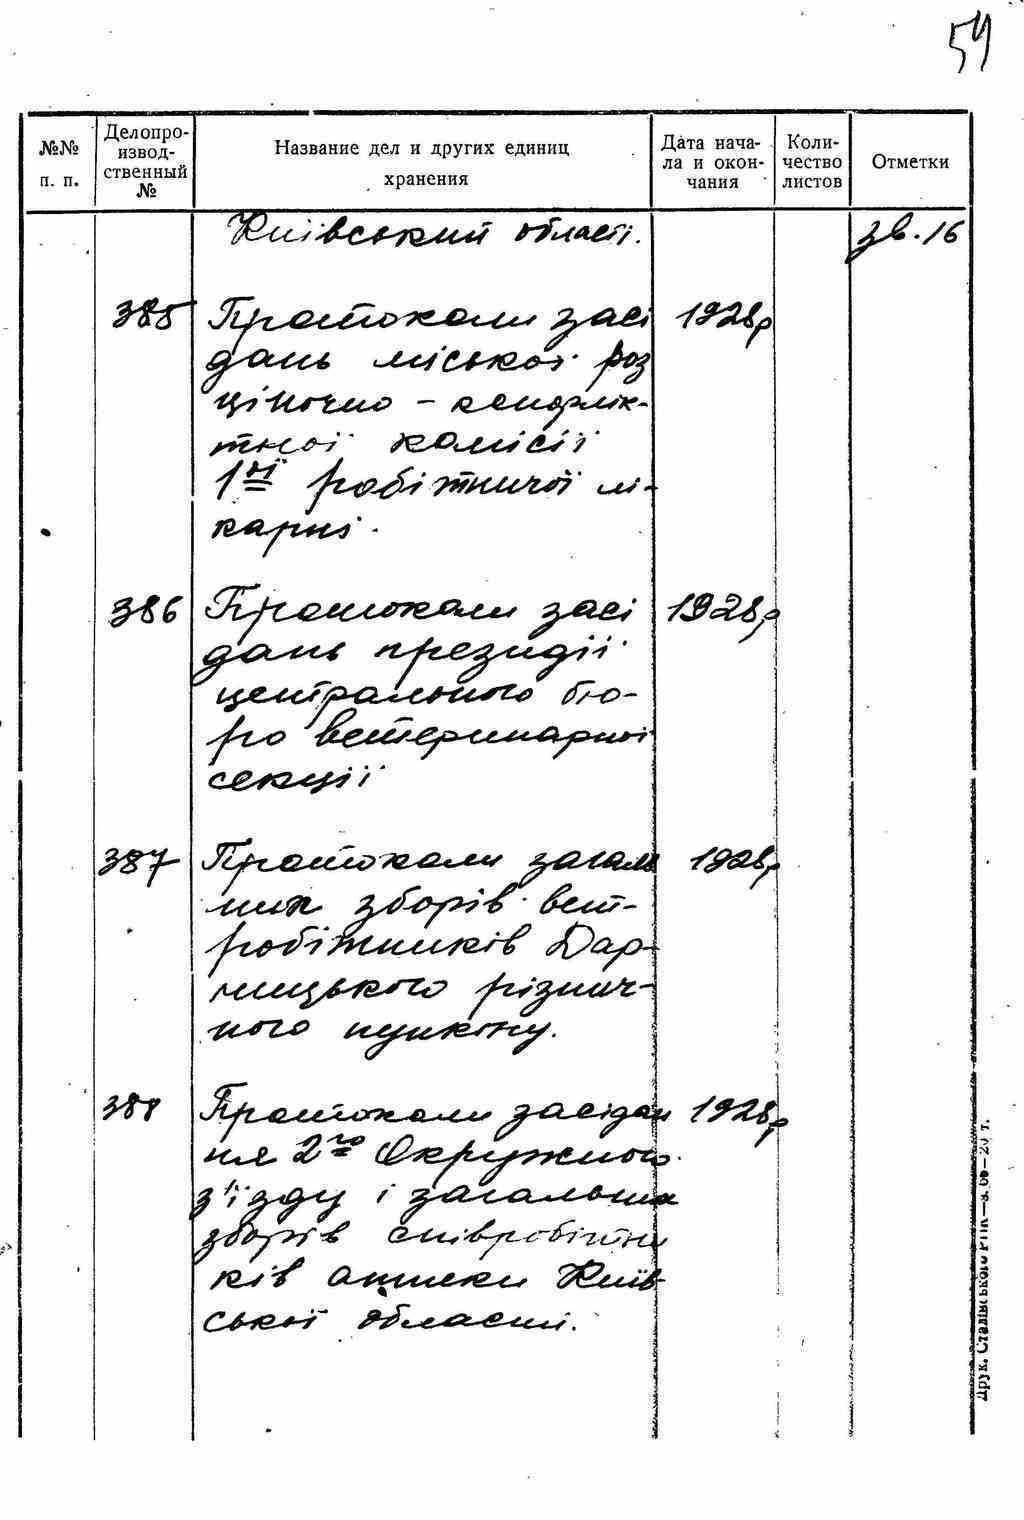 54
№№ п. п.
Делопро-
извод-
ственный
№
Название дел и других единиц
хранения
Дата нача-
ла и окон-
чания
Коли-
чество
листов
Отметки
Київський області. зв. 16
385 Протоколи засі 1928р
дань міської роз
ціночно - конфлік-
тної комісії
1ої робітничої лі-
карні.
386 Протоколи засі 1928р
дань президії
центрального бю-
ро ветеринарної
секції
387 Протоколи загаль 1928р
них зборів вет-
робітників Дар-
ницького різнич-
ного пункту.
388 Протоколи засідан 1928р
ня 2го Окружного
з'їзду і загальних
зборів співробітни
ків аптеки Київ-
ської області.